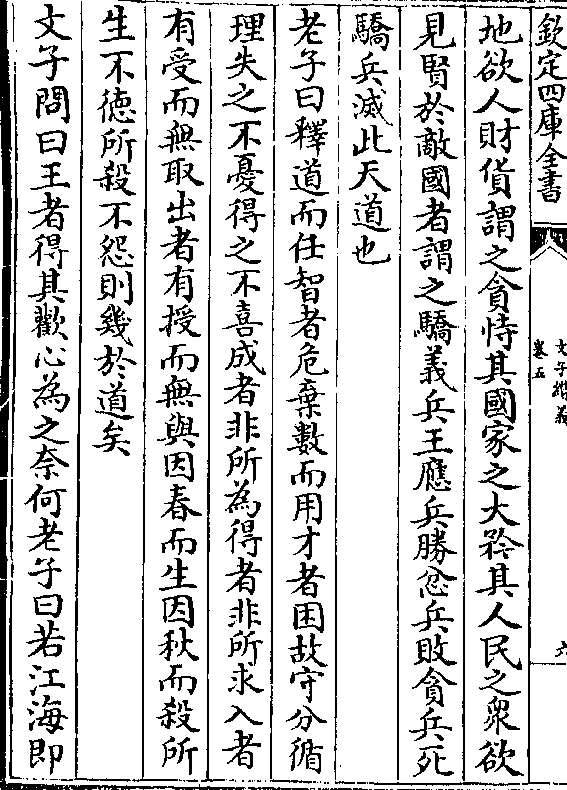 欽定四庫全書
文子纘義
卷五
六
地欲人財貨謂之貪恃其國家之大矜其人民之衆欲
見賢於敵國者謂之驕義兵王應兵勝忿兵敗貪兵死
驕兵滅此天道也
老子曰釋道而任智者危棄數而用才者困故守分循
理失之不憂得之不喜成者非所為得者非所求入者
有受而無取出者有授而無與因春而生因秋而殺所
生不徳所殺不怨則幾於道矣
文子問曰王者得其歡心為之奈何老子曰若江海即